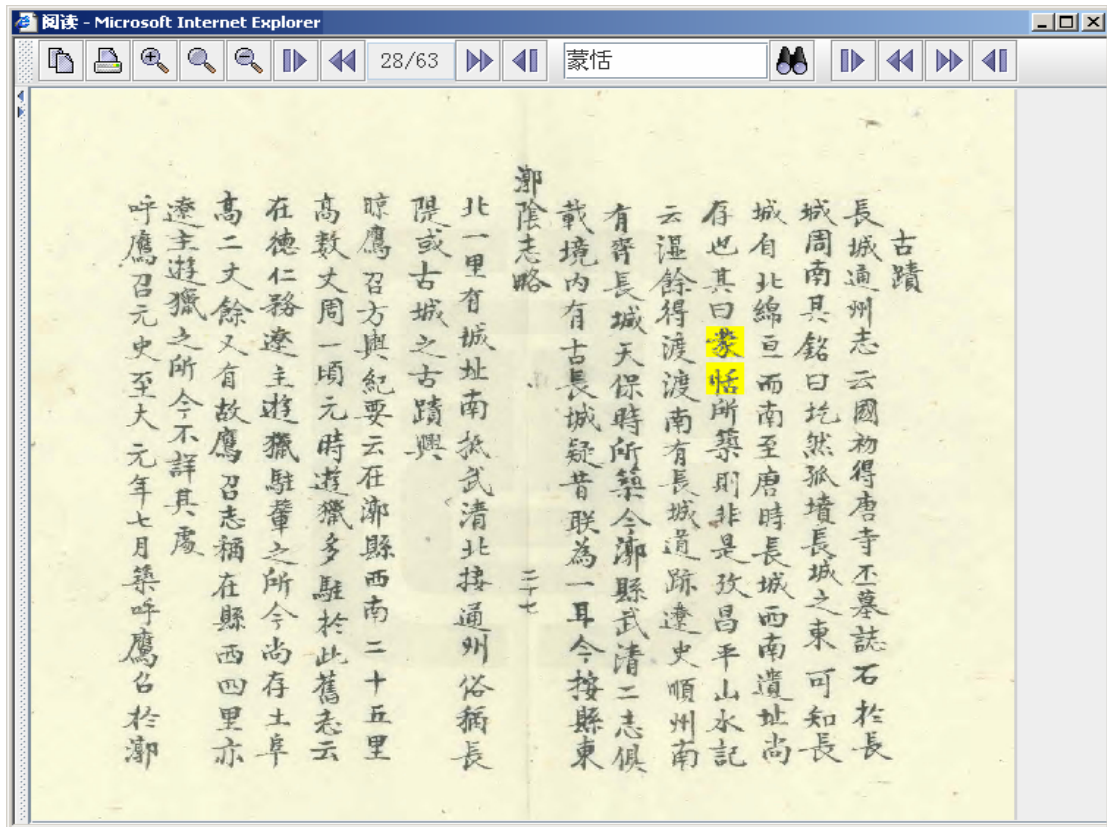 阅读 - Microsoft Internet Explorer
28/63
蒙恬
古蹟
長城通州志云國初得唐寺丕墓誌石於長
城周南其銘曰圪然孤墳長城之東可知長
城自北綿亘而南至唐時長城西南遺址尚
存也其曰蒙恬所築則非是攷昌平山水記
云湿餘得渡渡南有長城道跡遼史順州南
有齊長城天保時所築今漷縣武清二志俱
載境内有古長城疑昔联為一耳今按縣東
漷陰志略 二十七
北一里有城址南抵武清北接通州俗稱長
隄或古城之古蹟與
晾鷹召方輿紀要云在漷縣西南二十五里
高数丈周一頃元時遊獵多駐於此舊志云
在德仁務遼主遊獵駐輦之所今尚存土阜
高二丈餘又有故鷹召志稱在縣西四里亦
遼主遊獵之所今不詳其處
呼鷹召元史至大元年七月築呼鷹召於漷